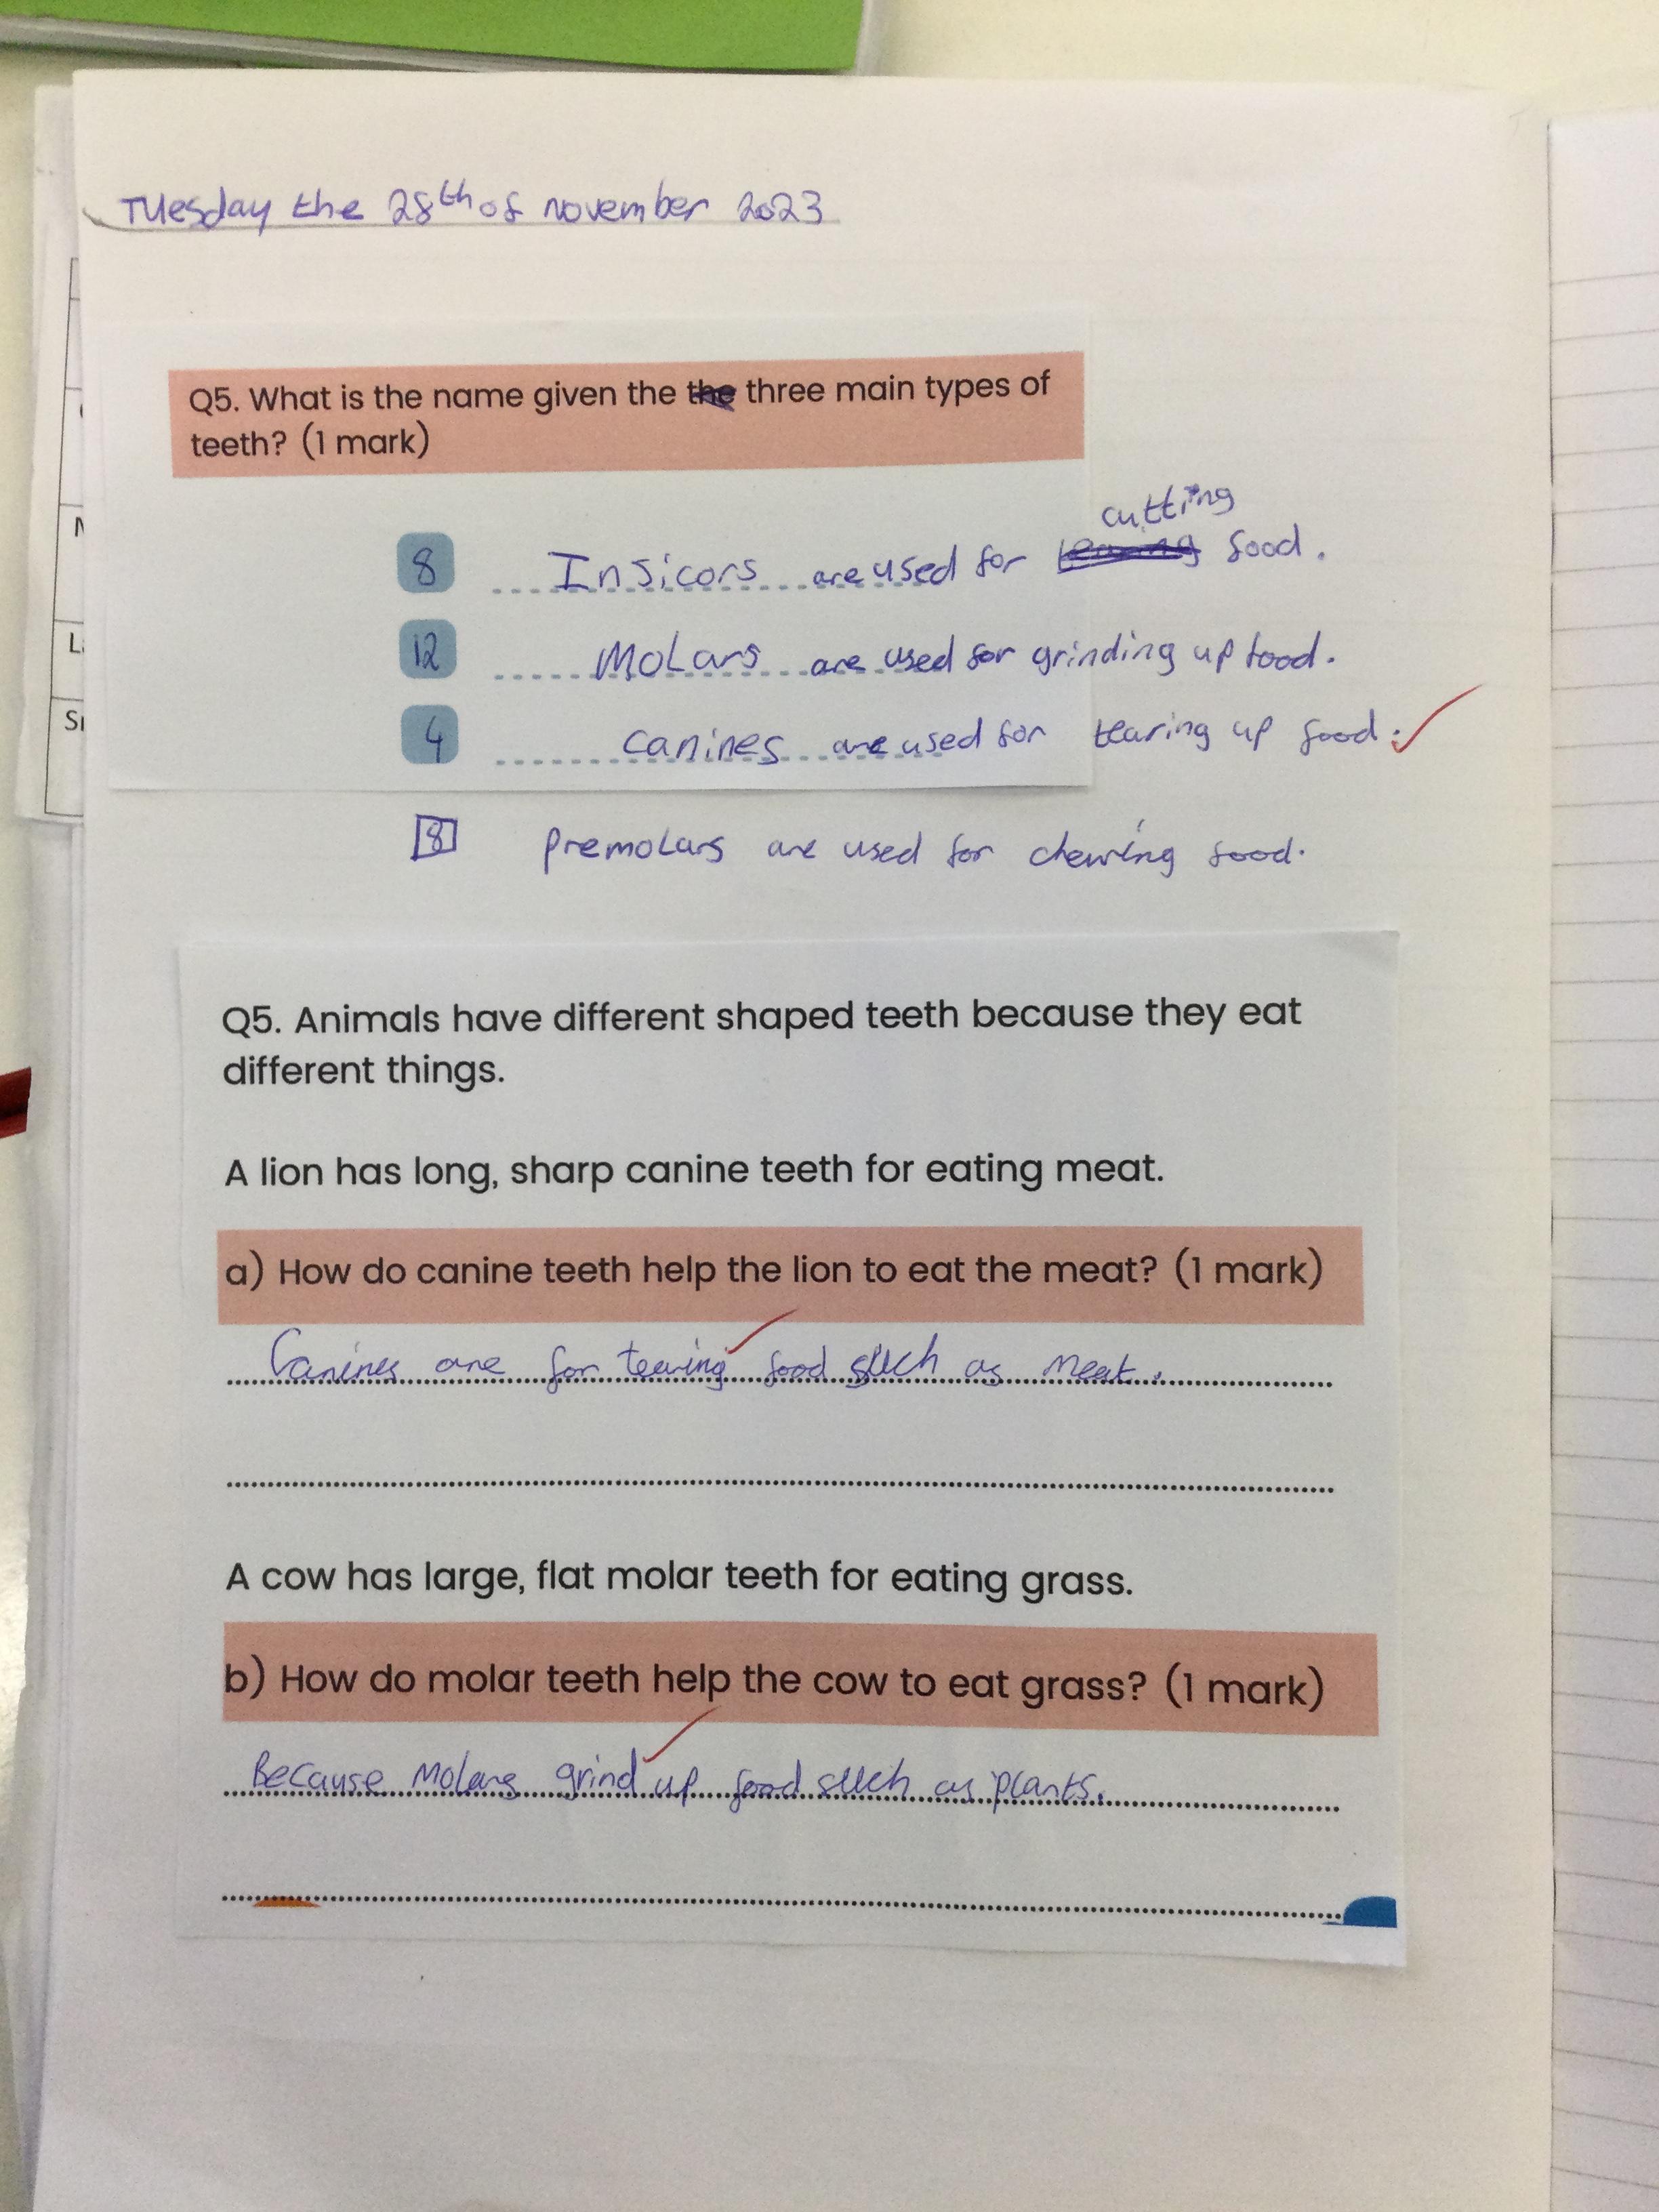 Tuesday the 28th of november 2023
Q5. What is the name given the the three main types of
teeth? (1 mark)
cutting
8 Insicors are used for food.
12 Molars are used for grinding up food.
4 canines are used for tearing up food.
8 premolars are used for chewing food.
Q5. Animals have different shaped teeth because they eat
different things.
A lion has long, sharp canine teeth for eating meat.
a) How do canine teeth help the lion to eat the meat? (1 mark)
Canines are for tearing food such as meat.
A cow has large, flat molar teeth for eating grass.
b) How do molar teeth help the cow to eat grass? (1 mark)
Because Molars grind up food such as plants.